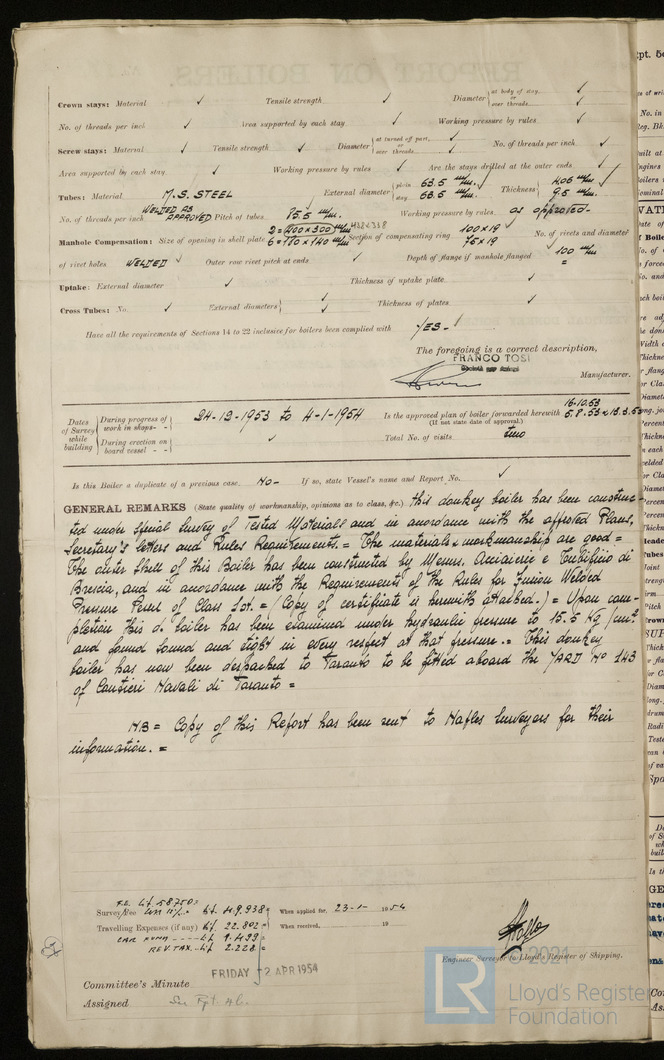 Crown stays: Material ✓ Tensile strength ✓ Diameter { at body of stay, ✓ or over threads ✓
No. of threads per inch ✓ Area supported by each stay ✓ Working pressure by rules ✓
Screw stays: Material ✓ Tensile strength ✓ Diameter { at turned off part, ✓ or over threads ✓ No. of threads per inch ✓
Area supported by each stay ✓ Working pressure by rules ✓ Are the stays drilled at the outer ends ✓
Tubes: Material M.S. STEEL External diameter { plain 63.5 m/m. stay 68.5 m/m. Thickness { 4.06 m/m. 9.5 m/m.
No. of threads per inch WELDED AS APPROVED Pitch of tubes 85.5 m/m. Working pressure by rules as approved-
Manhole Compensation: Size of opening in shell plate 2=400x300 m/m 6=180x140 m/m Section of compensating ring 100x19 75x19 No. of rivets and diameter
of rivet holes WELDED ✓ Outer row rivet pitch at ends ✓ Depth of flange if manhole flanged 100 m/m =
Uptake: External diameter ✓ Thickness of uptake plate ✓
Cross Tubes: No. ✓ External diameters { ✓ ✓ Thickness of plates ✓
Have all the requirements of Sections 14 to 22 inclusive for boilers been complied with YES-
The foregoing is a correct description,
FRANCO TOSI
Manufacturer.
Dates of Survey while building { During progress of work in shops - - } 24-12-1953 to 4-1-1954 Is the approved plan of boiler forwarded herewith 16.10.53 5.8.53 & 13.3.53
(If not state date of approval.)
{ During erection on board vessel - - } ✓ Total No. of visits two
Is this Boiler a duplicate of a previous case. No- If so, state Vessel's name and Report No. ✓
GENERAL REMARKS (State quality of workmanship, opinions as to class, &c.) This donkey boiler has been construc-
ted under special survey of Tested Materiall and in accordance with the approved Plans,
Secretary's letters and Rules Requirements.= The materials & workmanship are good =
The outer shell of this Boiler has been constructed by Messrs. Acciaierie e Tubificio di
Brescia, and in accordance with the Requirements of the Rules for Fusion Welded
Pressure Vessel of Class 1st. = (Copy of certificate is herewith attached.) = Upon com-
pletion this d. boiler has been examined under hydraulic pressure to 15.5 Kg/cm²
and found sound and tight in every respect at that pressure.= This donkey
boiler has now been despatched to Taranto to be fitted aboard the YARD No 143
of Cantieri Navali di Taranto =
N.B = Copy of this Report has been sent to Naples Surveyors for their
information. =
F.E. Lit 58750=
Survey Fee Lit 49.938= When applied for, 23-1- 1954
Travelling Expenses (if any) Lit. 22.802= When received, 19
Lit 1.499=
REV. TAX Lit 2.228=
Engineer Surveyor to Lloyd's Register of Shipping.
FRIDAY 2 APR 1954
Committee's Minute
Assigned See Rpt 4b.
© 2021
LR
Lloyd's Register
Foundation